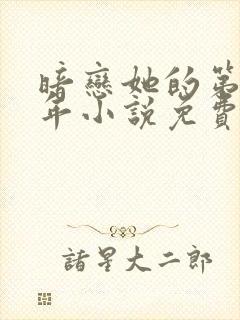 暗戀她的第
年小說免費
諸星大二郎